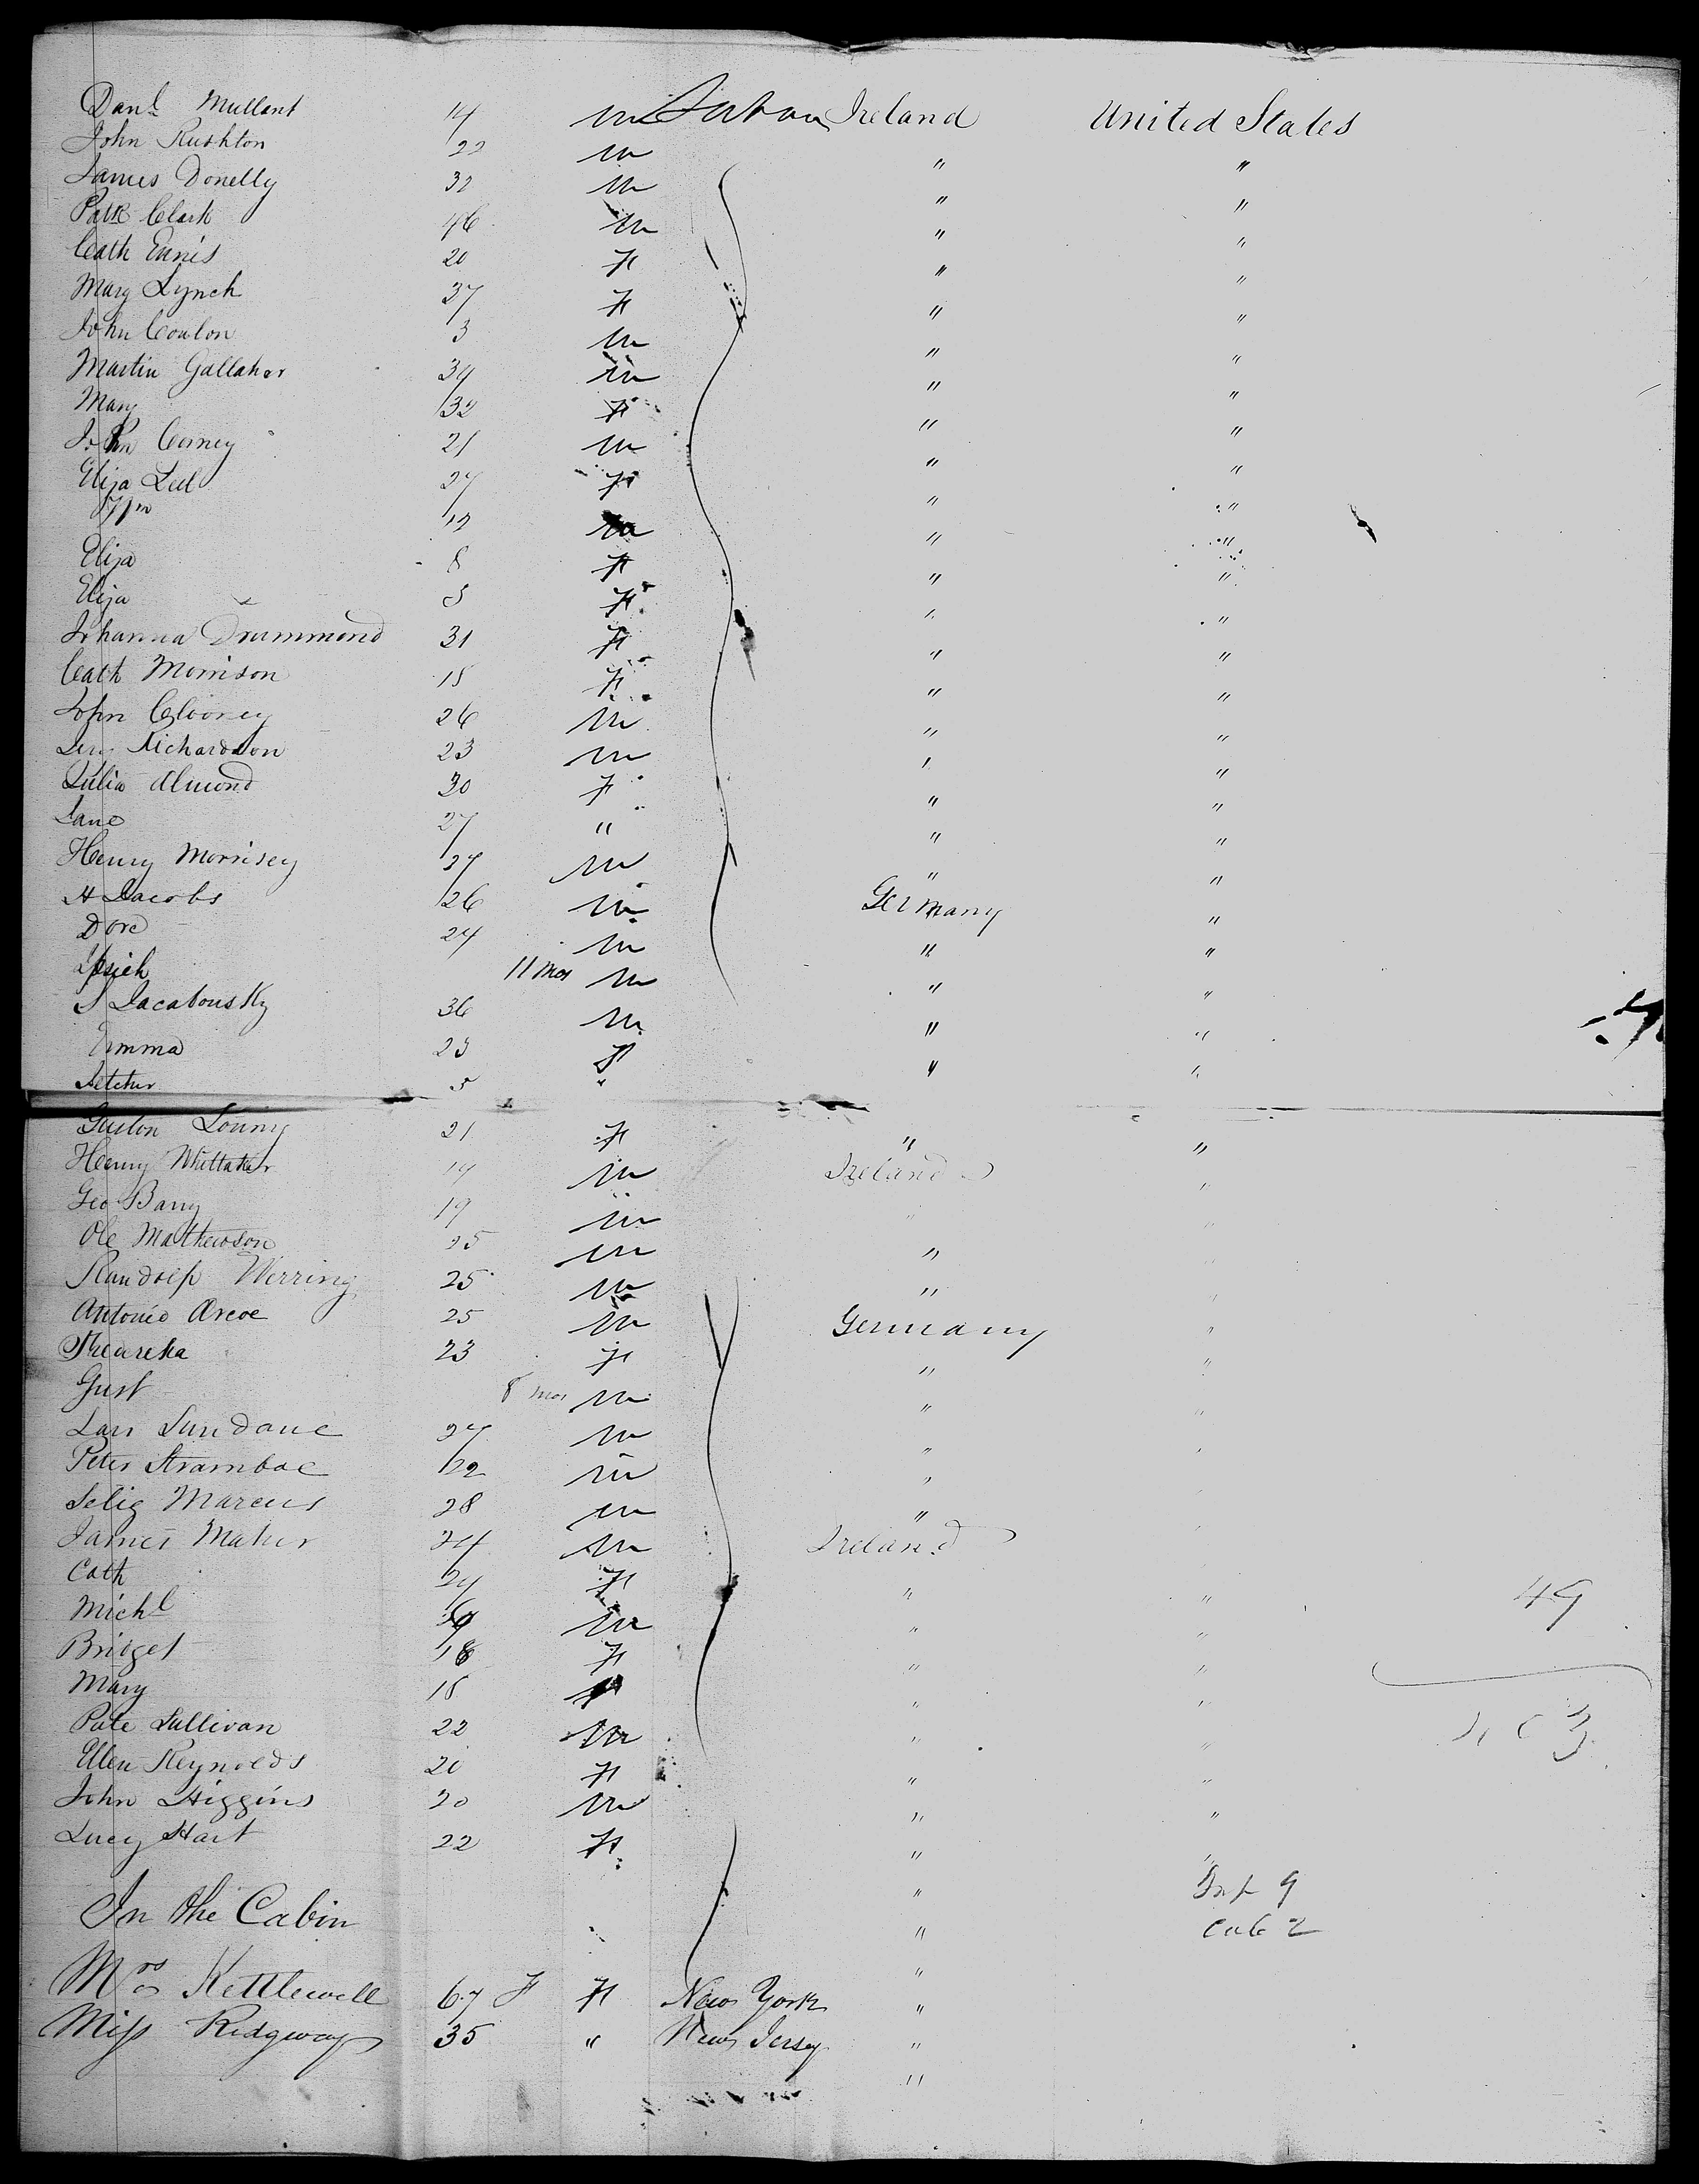 Danl Mullant 14 m Ireland United States
John Rushton 22 m " "
James Donelly 32 m " "
Patk Clark 46 m " "
Cath Ennis 20 F " "
Mary Lynch 37 F " "
John Conlon 3 m " "
Martin Gallaher 34 m " "
Mary 32 F " "
John Corney 21 m " "
Eliza 27 F " "
Wm 12 m " "
Eliza 8 F " "
Eliza 3 F " "
Johanna Drummond 31 F " "
Cath Morrison 18 F " "
John Clooney 26 m " "
Richardson 23 m " "
Julia Almond 30 F " "
Jane 27 " " "
Henry Morrisey 27 m " "
H Jacobs 26 m Germany "
Dore 24 m " "
11 mos m " "
S Jacabousky 36 m " "
Emma 23 F " "
5 "
21 F " "
Henry Whittaker 19 m Ireland "
Geo Barry 19 m " "
Ole Mathewson 25 m "
Randolp Werring 25 m " "
Antonio Arcoe 25 m Germany "
23 F " "
Gust 8 mos m " "
Lars Sundane 27 m " "
Peter Strambac 22 m " "
Selig Marcus 28 m "
James Maher 24 m Ireland "
Cath 24 F " " 49
Michl m " "
Bridget 18 F " "
Mary 18 F " "
Pate Sullivan 22 m " "
Ellen Reynolds 20 F " "
John Higgins 20 m " "
Lucy Hart 22 F " "
In the Cabin " Inf 9
" Cab 2
Mrs Kettlewell 67 F F New York "
Miss Ridgway 35 " New Jersey "
"